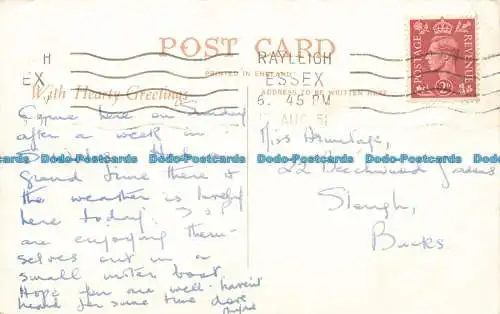 POST CARD
PRINTED IN ENGLAND
With Hearty Greetings
ADDRESS TO BE WRITTEN HERE
RAYLEIGH
ESSEX
6. 45 PM
AUG 51
H
EX
POSTAGE REVENUE
Came here on Sunday
after a week in
grand time there &
the weather is lovely
here today.
are enjoying them-
selves out in a
small motor boat.
Hope you are well - haven't
heard for some time love
Miss Armitage,
22 Beechwood Gardens
Slough,
Bucks
Bado-Postcards Bado-Postcards Bado-Postcards Bado-Postcards